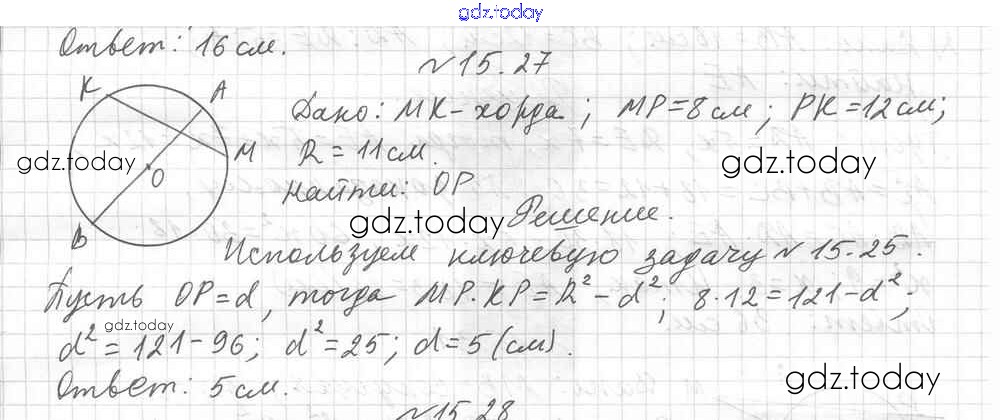 gdz.today
Ответ: 16 см.
№15.27
K
A
M
O
B
Дано: MK-хорда; MP=8см; PK=12см;
R=11см.
gdz.today
gdz.today
Найти: OP
gdz.today
Решение.
Используем ключевую задачу №15.25.
Пусть OP=d, тогда MP·KP=R²-d²; 8·12=121-d²;
gdz.today
d²=121-96; d²=25; d=5(см).
Ответ: 5см.
gdz.today
№15.28